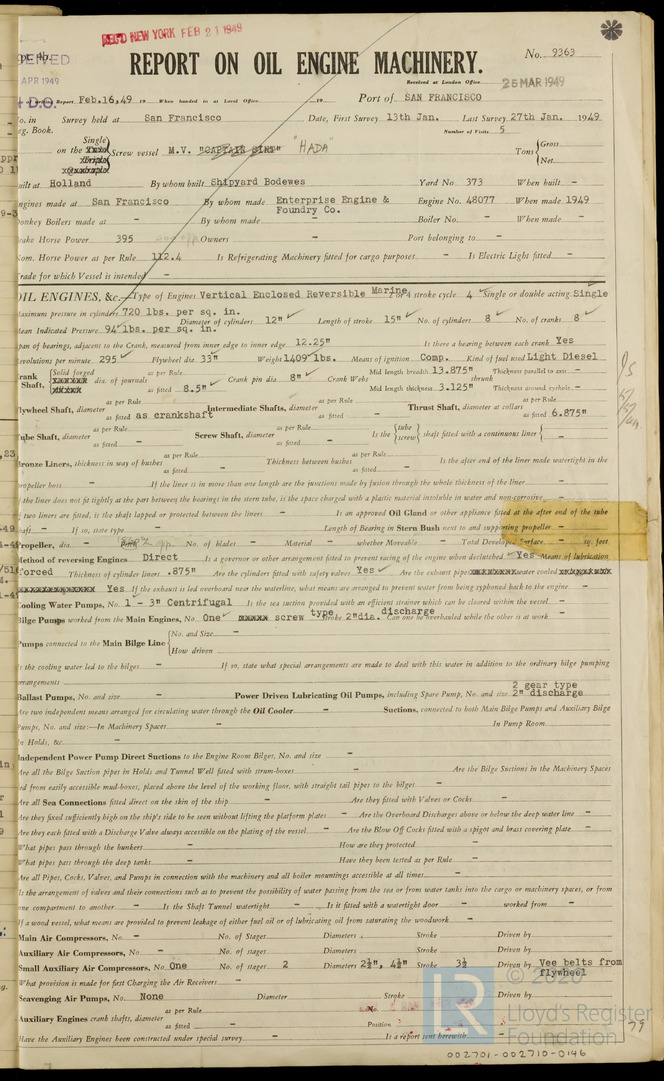 REC'D NEW YORK FEB 21 1949
APR 1949
REPORT ON OIL ENGINE MACHINERY.
No. 9363
Received at London Office 25 MAR 1949
Report Feb.16,49 19 When handed in at Local Office 19 Port of SAN FRANCISCO
Survey held at San Francisco Date, First Survey 13th Jan. Last Survey 27th Jan. 1949
Reg. Book. Number of Visits 5
on the Single Screw vessel M.V. "CAPTAIN "HADA" Tons Gross Net
Built at Holland By whom built Shipyard Bodewes Yard No. 373 When built -
Engines made at San Francisco By whom made Enterprise Engine & Foundry Co. Engine No. 48077 When made 1949
Donkey Boilers made at - By whom made - Boiler No. - When made -
Brake Horse Power 395 Owners - Port belonging to -
Nom. Horse Power as per Rule 112.4 Is Refrigerating Machinery fitted for cargo purposes - Is Electric Light fitted -
Trade for which Vessel is intended -
OIL ENGINES, &c. Type of Engines Vertical Enclosed Reversible Marine 2 or 4 stroke cycle 4 Single or double acting Single
Maximum pressure in cylinders 720 lbs. per sq. in. Diameter of cylinders 12" Length of stroke 15" No. of cylinders 8 No. of cranks 8
Mean Indicated Pressure 94 lbs. per sq. in.
Span of bearings, adjacent to the Crank, measured from inner edge to inner edge 12.25" Is there a bearing between each crank Yes
Revolutions per minute 295 Flywheel dia. 33" Weight 1409 lbs. Means of ignition Comp. Kind of fuel used Light Diesel
Crank Shaft, Solid forged dia. of journals as per Rule as fitted 8.5" Crank pin dia. 8" Crank Webs Mid length breadth 13.875" Thickness parallel to axis -
Mid length thickness 3.125" shrunk Thickness around eyehole -
Flywheel Shaft, diameter as per Rule as fitted as crankshaft Intermediate Shafts, diameter as per Rule as fitted - Thrust Shaft, diameter at collars as per Rule as fitted 6.875"
Tube Shaft, diameter as per Rule as fitted - Screw Shaft, diameter as per Rule as fitted - Is the tube screw shaft fitted with a continuous liner -
Bronze Liners, thickness in way of bushes as per Rule as fitted - Thickness between bushes as per Rule as fitted - Is the after end of the liner made watertight in the
propeller boss - If the liner is in more than one length are the junctions made by fusion through the whole thickness of the liner -
If the liner does not fit tightly at the part between the bearings in the stern tube, is the space charged with a plastic material insoluble in water and non-corrosive -
If two liners are fitted, is the shaft lapped or protected between the liners - Is an approved Oil Gland or other appliance fitted at the after end of the tube
shaft - If so, state type - Length of Bearing in Stern Bush next to and supporting propeller -
Propeller, dia. - No. of blades - Material - whether Moveable - Total Developed Surface - sq. feet
Method of reversing Engines Direct Is a governor or other arrangement fitted to prevent racing of the engine when declutched Yes Means of lubrication
forced Thickness of cylinder liners .875" Are the cylinders fitted with safety valves Yes Are the exhaust pipes water cooled
Yes If the exhaust is led overboard near the waterline, what means are arranged to prevent water from being syphoned back to the engine -
Cooling Water Pumps, No. 1 - 3" Centrifugal Is the sea suction provided with an efficient strainer which can be cleared within the vessel -
Bilge Pumps worked from the Main Engines, No. One screw type Stroke 2"dia. discharge Can one be overhauled while the other is at work -
Pumps connected to the Main Bilge Line No. and Size - How driven
Is the cooling water led to the bilges - If so, state what special arrangements are made to deal with this water in addition to the ordinary bilge pumping
arrangements -
Ballast Pumps, No. and size - Power Driven Lubricating Oil Pumps, including Spare Pump, No. and size 2 gear type 2" discharge
Are two independent means arranged for circulating water through the Oil Cooler - Suctions, connected to both Main Bilge Pumps and Auxiliary Bilge
Pumps, No. and size:—In Machinery Spaces - In Pump Room
In Holds, &c. -
Independent Power Pump Direct Suctions to the Engine Room Bilges, No. and size -
Are all the Bilge Suction pipes in Holds and Tunnel Well fitted with strum-boxes - Are the Bilge Suctions in the Machinery Spaces
led from easily accessible mud-boxes, placed above the level of the working floor, with straight tail pipes to the bilges -
Are all Sea Connections fitted direct on the skin of the ship - Are they fitted with Valves or Cocks -
Are they fixed sufficiently high on the ship's side to be seen without lifting the platform plates - Are the Overboard Discharges above or below the deep water line -
Are they each fitted with a Discharge Valve always accessible on the plating of the vessel - Are the Blow Off Cocks fitted with a spigot and brass covering plate -
What pipes pass through the bunkers - How are they protected -
What pipes pass through the deep tanks - Have they been tested as per Rule -
Are all Pipes, Cocks, Valves, and Pumps in connection with the machinery and all boiler mountings accessible at all times -
Is the arrangement of valves and their connections such as to prevent the possibility of water passing from the sea or from water tanks into the cargo or machinery spaces, or from
one compartment to another - Is the Shaft Tunnel watertight - Is it fitted with a watertight door - worked from -
If a wood vessel, what means are provided to prevent leakage of either fuel oil or of lubricating oil from saturating the woodwork -
Main Air Compressors, No. - No. of Stages Diameters - Stroke - Driven by -
Auxiliary Air Compressors, No. - No. of stages - Diameters - Stroke - Driven by -
Small Auxiliary Air Compressors, No. One No. of stages 2 Diameters 2½", 4½" Stroke 3½ Driven by Vee belts from flywheel
What provision is made for first Charging the Air Receivers -
Scavenging Air Pumps, No. None Diameter Stroke Driven by
Auxiliary Engines crank shafts, diameter as per Rule as fitted - No. Position -
Have the Auxiliary Engines been constructed under special survey - Is a report sent herewith -
© 2020
Lloyd's Register
Foundation
79
002701-002710-0146